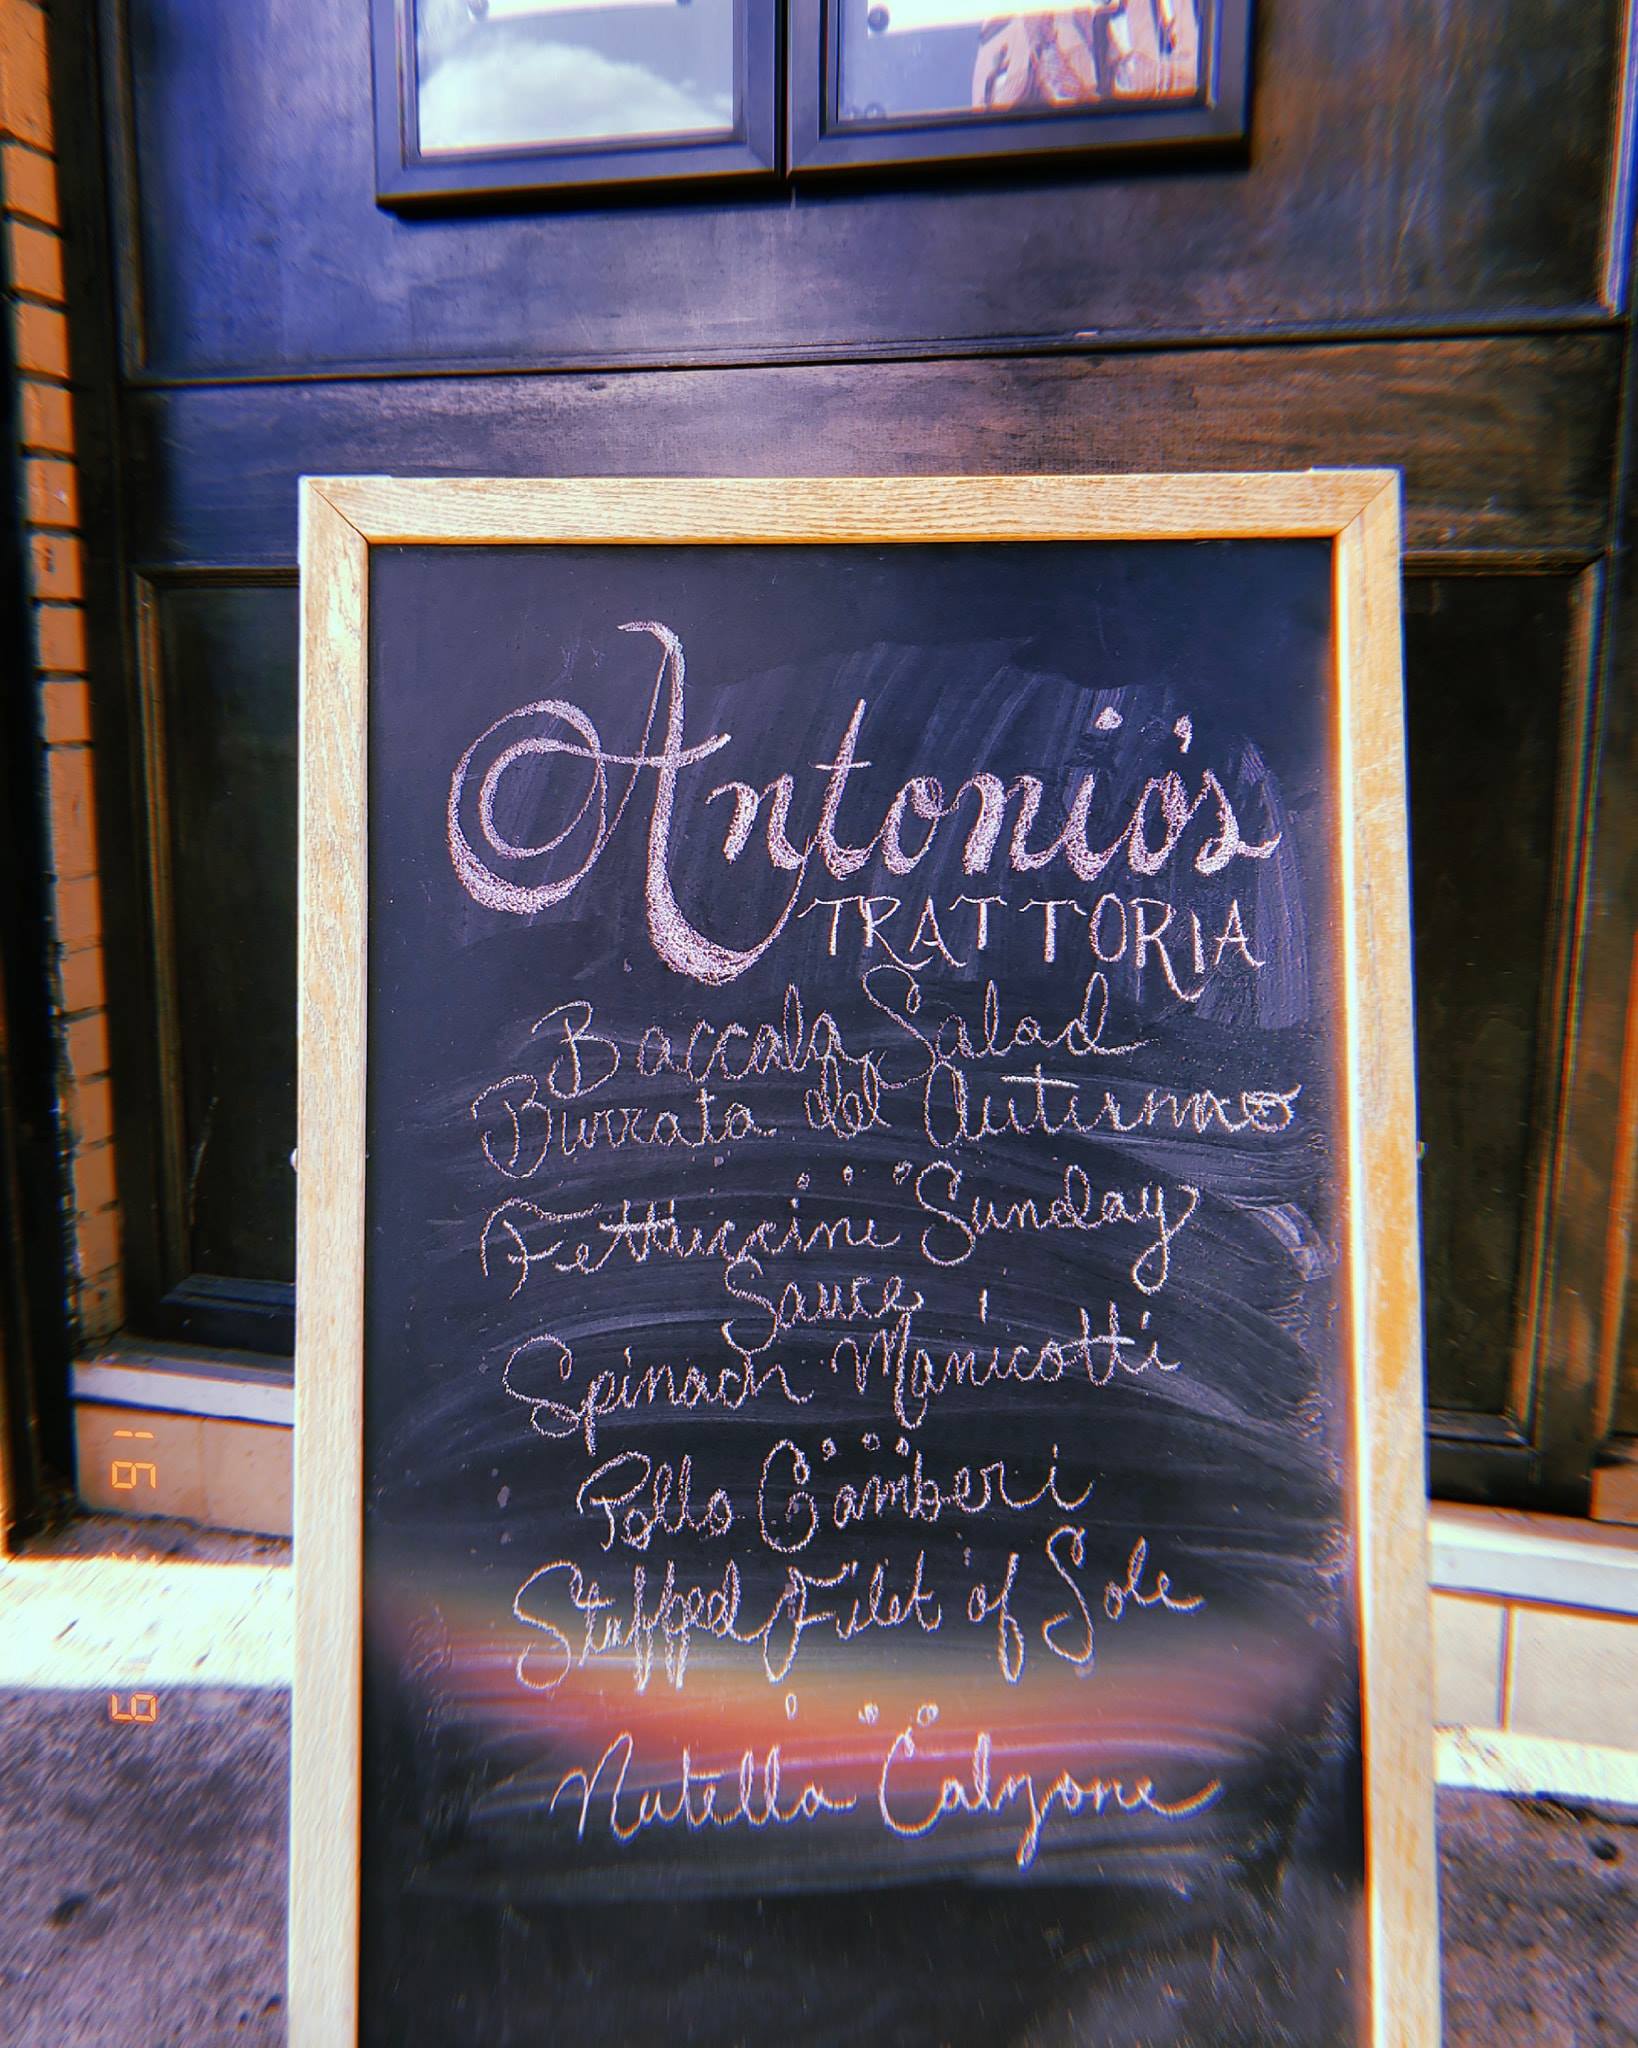 Antonio's
TRATTORIA
Baccala Salad
Burrata del Autunno
Fettuccini "Sunday
Sauce
Spinach Manicotti
Pollo Gamberi
Stuffed Filet of Sole
Nutella Calzone